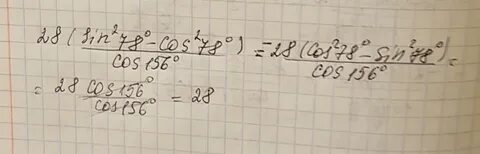 28(sin²78°-cos²78°)/cos156° = -28(cos²78°-sin²78°)/cos156° =
= 28 cos156°/cos156° = 28